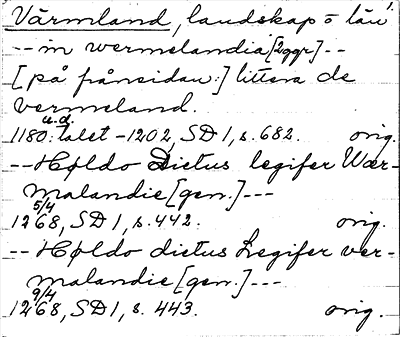 Värmland, landskap o län
-- in wermelandia [2 ggr] --
[på frånsidan:] littera de
vermeland.
1180-talet u.d. - 1202, SD 1, s. 682. orig.
-- Høldo Dictus legifer Wær-
malandie [gen.] ---
1268 5/4, SD 1, s. 442. orig.
-- Høldo dictus Legifer ver-
malandie [gen.] ---
1268 9/4, SD 1, s. 443. orig.